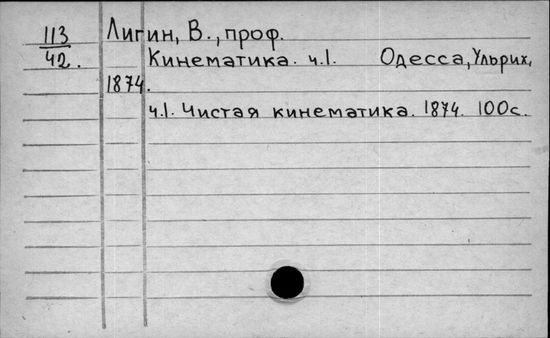 113
42.
Лигин, В., проф.
Кинематика. ч.I. Одесса, Ульрих,
1874.
ч.I. Чистая кинематика. 1874. 100с.